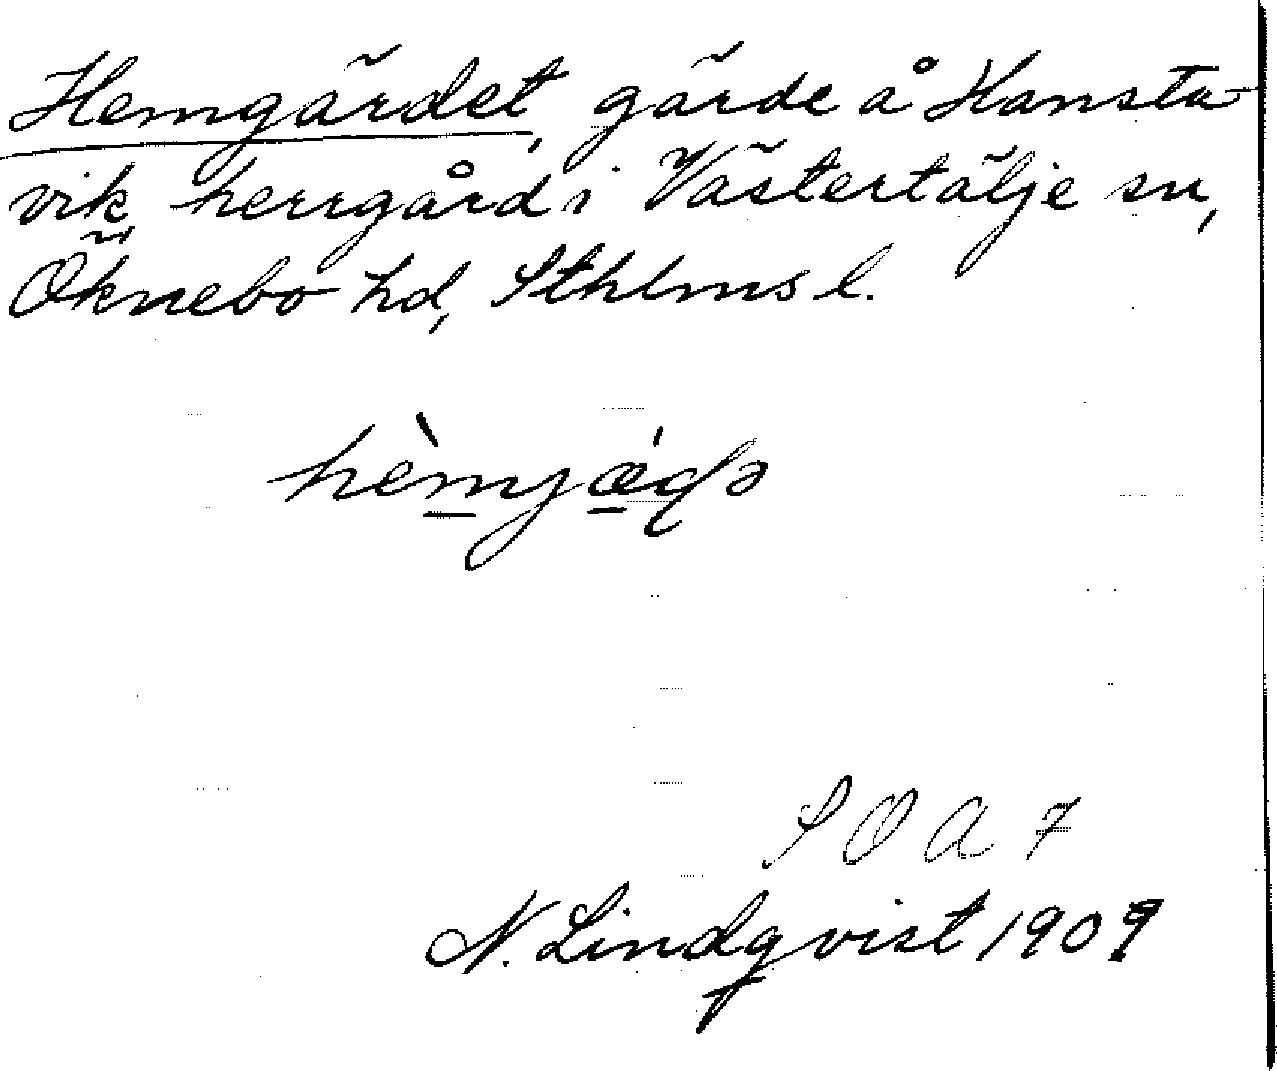 Hemgärdet, gärde å Hansta-
vik herrgård i Västertälje sn,
Öknebo hd, Sthlms l.
SOA 7
N. Lindqvist 1909